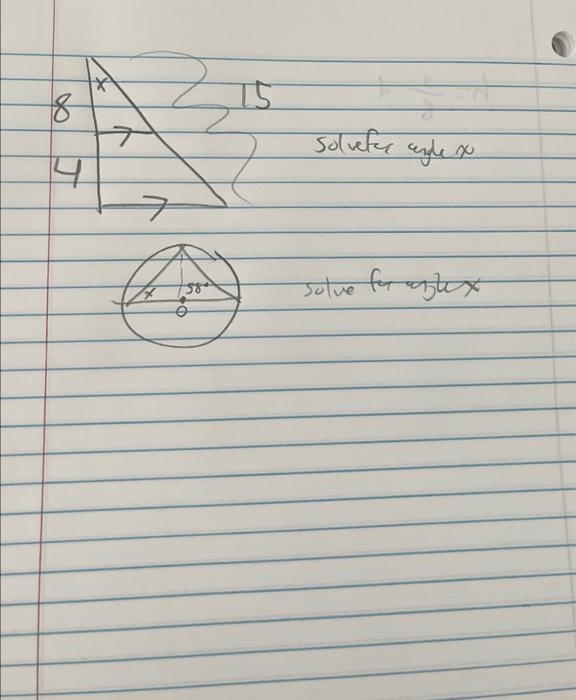 x
8
15
solve for angle x
4
x 58°
O
solve for angle x